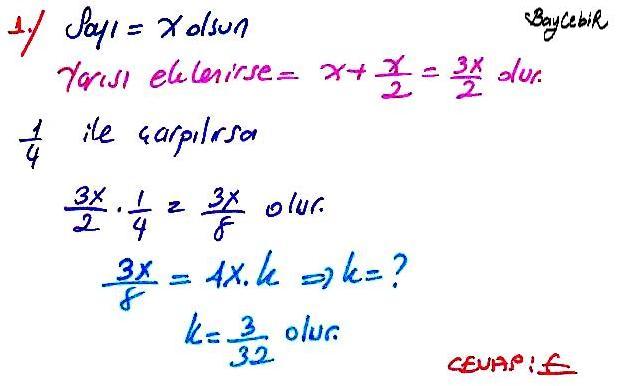 1./ Sayı = x olsun
BayCebiR
Yarısı eklenirse = x + x/2 = 3x/2 olur.
1/4 ile çarpılırsa
3x/2 . 1/4 = 3x/8 olur.
3x/8 = 4x.k ⇒ k = ?
k = 3/32 olur.
CEVAP : E